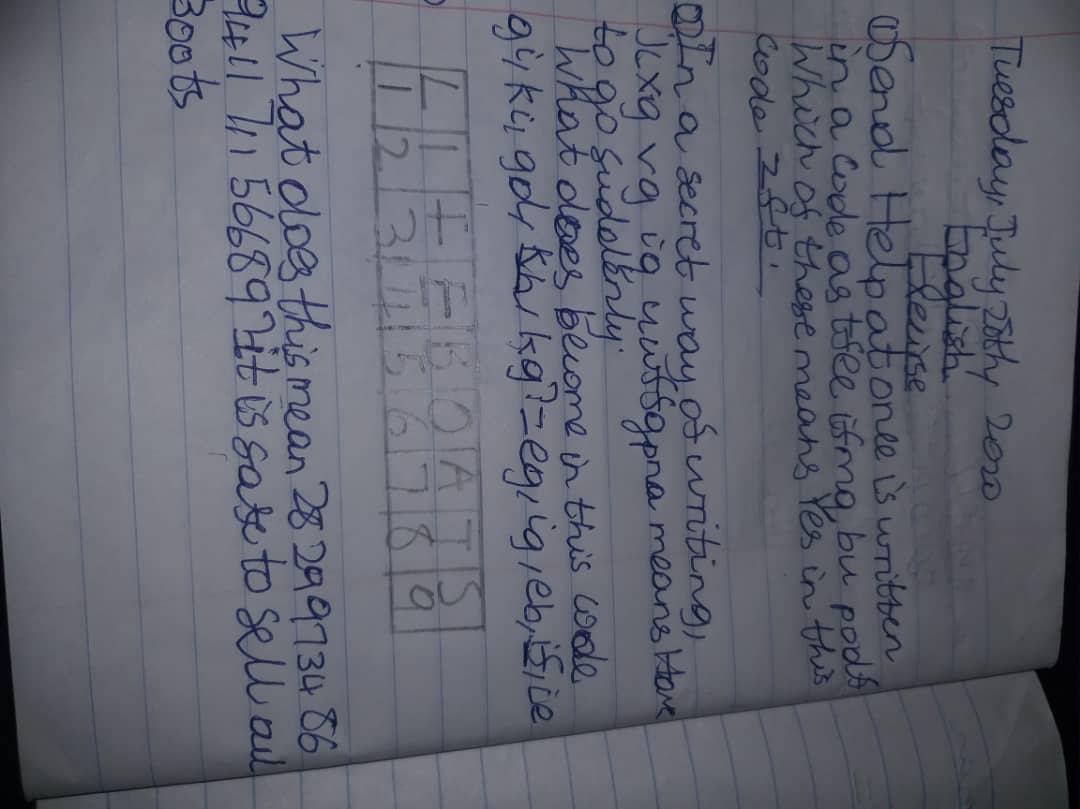 Tuesday, July 28th, 2020
English
Exercise
① Send Help at one is written
in a code as tfoe ifmq bu podf
Which of these means Yes in this
code zft.
② In a secret way of writing,
to go suddenly.
What does become in this code
L I F E B O A T S
1 2 3 4 5 6 7 8 9
What does this mean 28 29 9734 86
9411 711 56689? It is safe to sell all
Boots